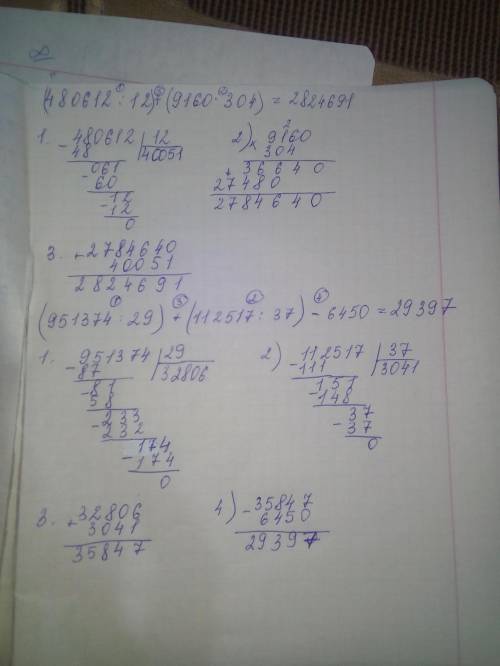 ∞
(480612 : 12) + (9160 · 304) = 2824691
1. - 480612 | 12
48 | 40051
- 061
60
- 12
- 12
0
2) × 9160
304
+ 36640
27480
2784640
3. + 2784640
40051
2824691
(951374 : 29) + (112517 : 37) - 6450 = 29397
1. - 951374 | 29
87 | 32806
- 81
58
- 233
232
- 174
174
0
2) - 112517 | 37
111 | 3041
- 151
148
- 37
37
0
3. + 32806
3041
35847
4) - 35847
6450
29397